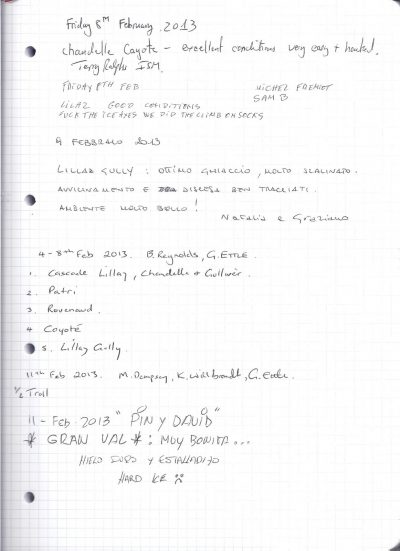 Friday 8th February 2013
Chandelle Coyote - excellent conditions very easy + hooked.
Terry Ralphs ISM.
FRIDAY 8TH FEB
MICHEL FREMIOT
SAM B
LILAZ GOOD CONDITIONS
FUCK THE ICE AXES WE DID THE CLIMB ON SOCKS
9 FEBBRAIO 2013
LILLAZ GULLY : OTTIMO GHIACCIO, MOLTO SCALINATO.
AVVICINAMENTO E DISCESA BEN TRACCIATI.
AMBIENTE MOLTO BELLO!
Natalia e Graziano
4-8th Feb 2013. B. Reynolds, G. ETTLE.
1. Cascade Lillaz, Chandelle + Gulliver.
2. Patri
3. Rovenaud.
4 Coyoté
5. Lillaz Gully.
11th Feb 2013. M. Dempsey, K. G. Ettle.
1/2 Troll
11 - FEB 2013 "PIN Y DAVID"
# GRAN VAL #: MUY BONITA...
HIELO DURO Y ESTALLADIZO
HARD ICE